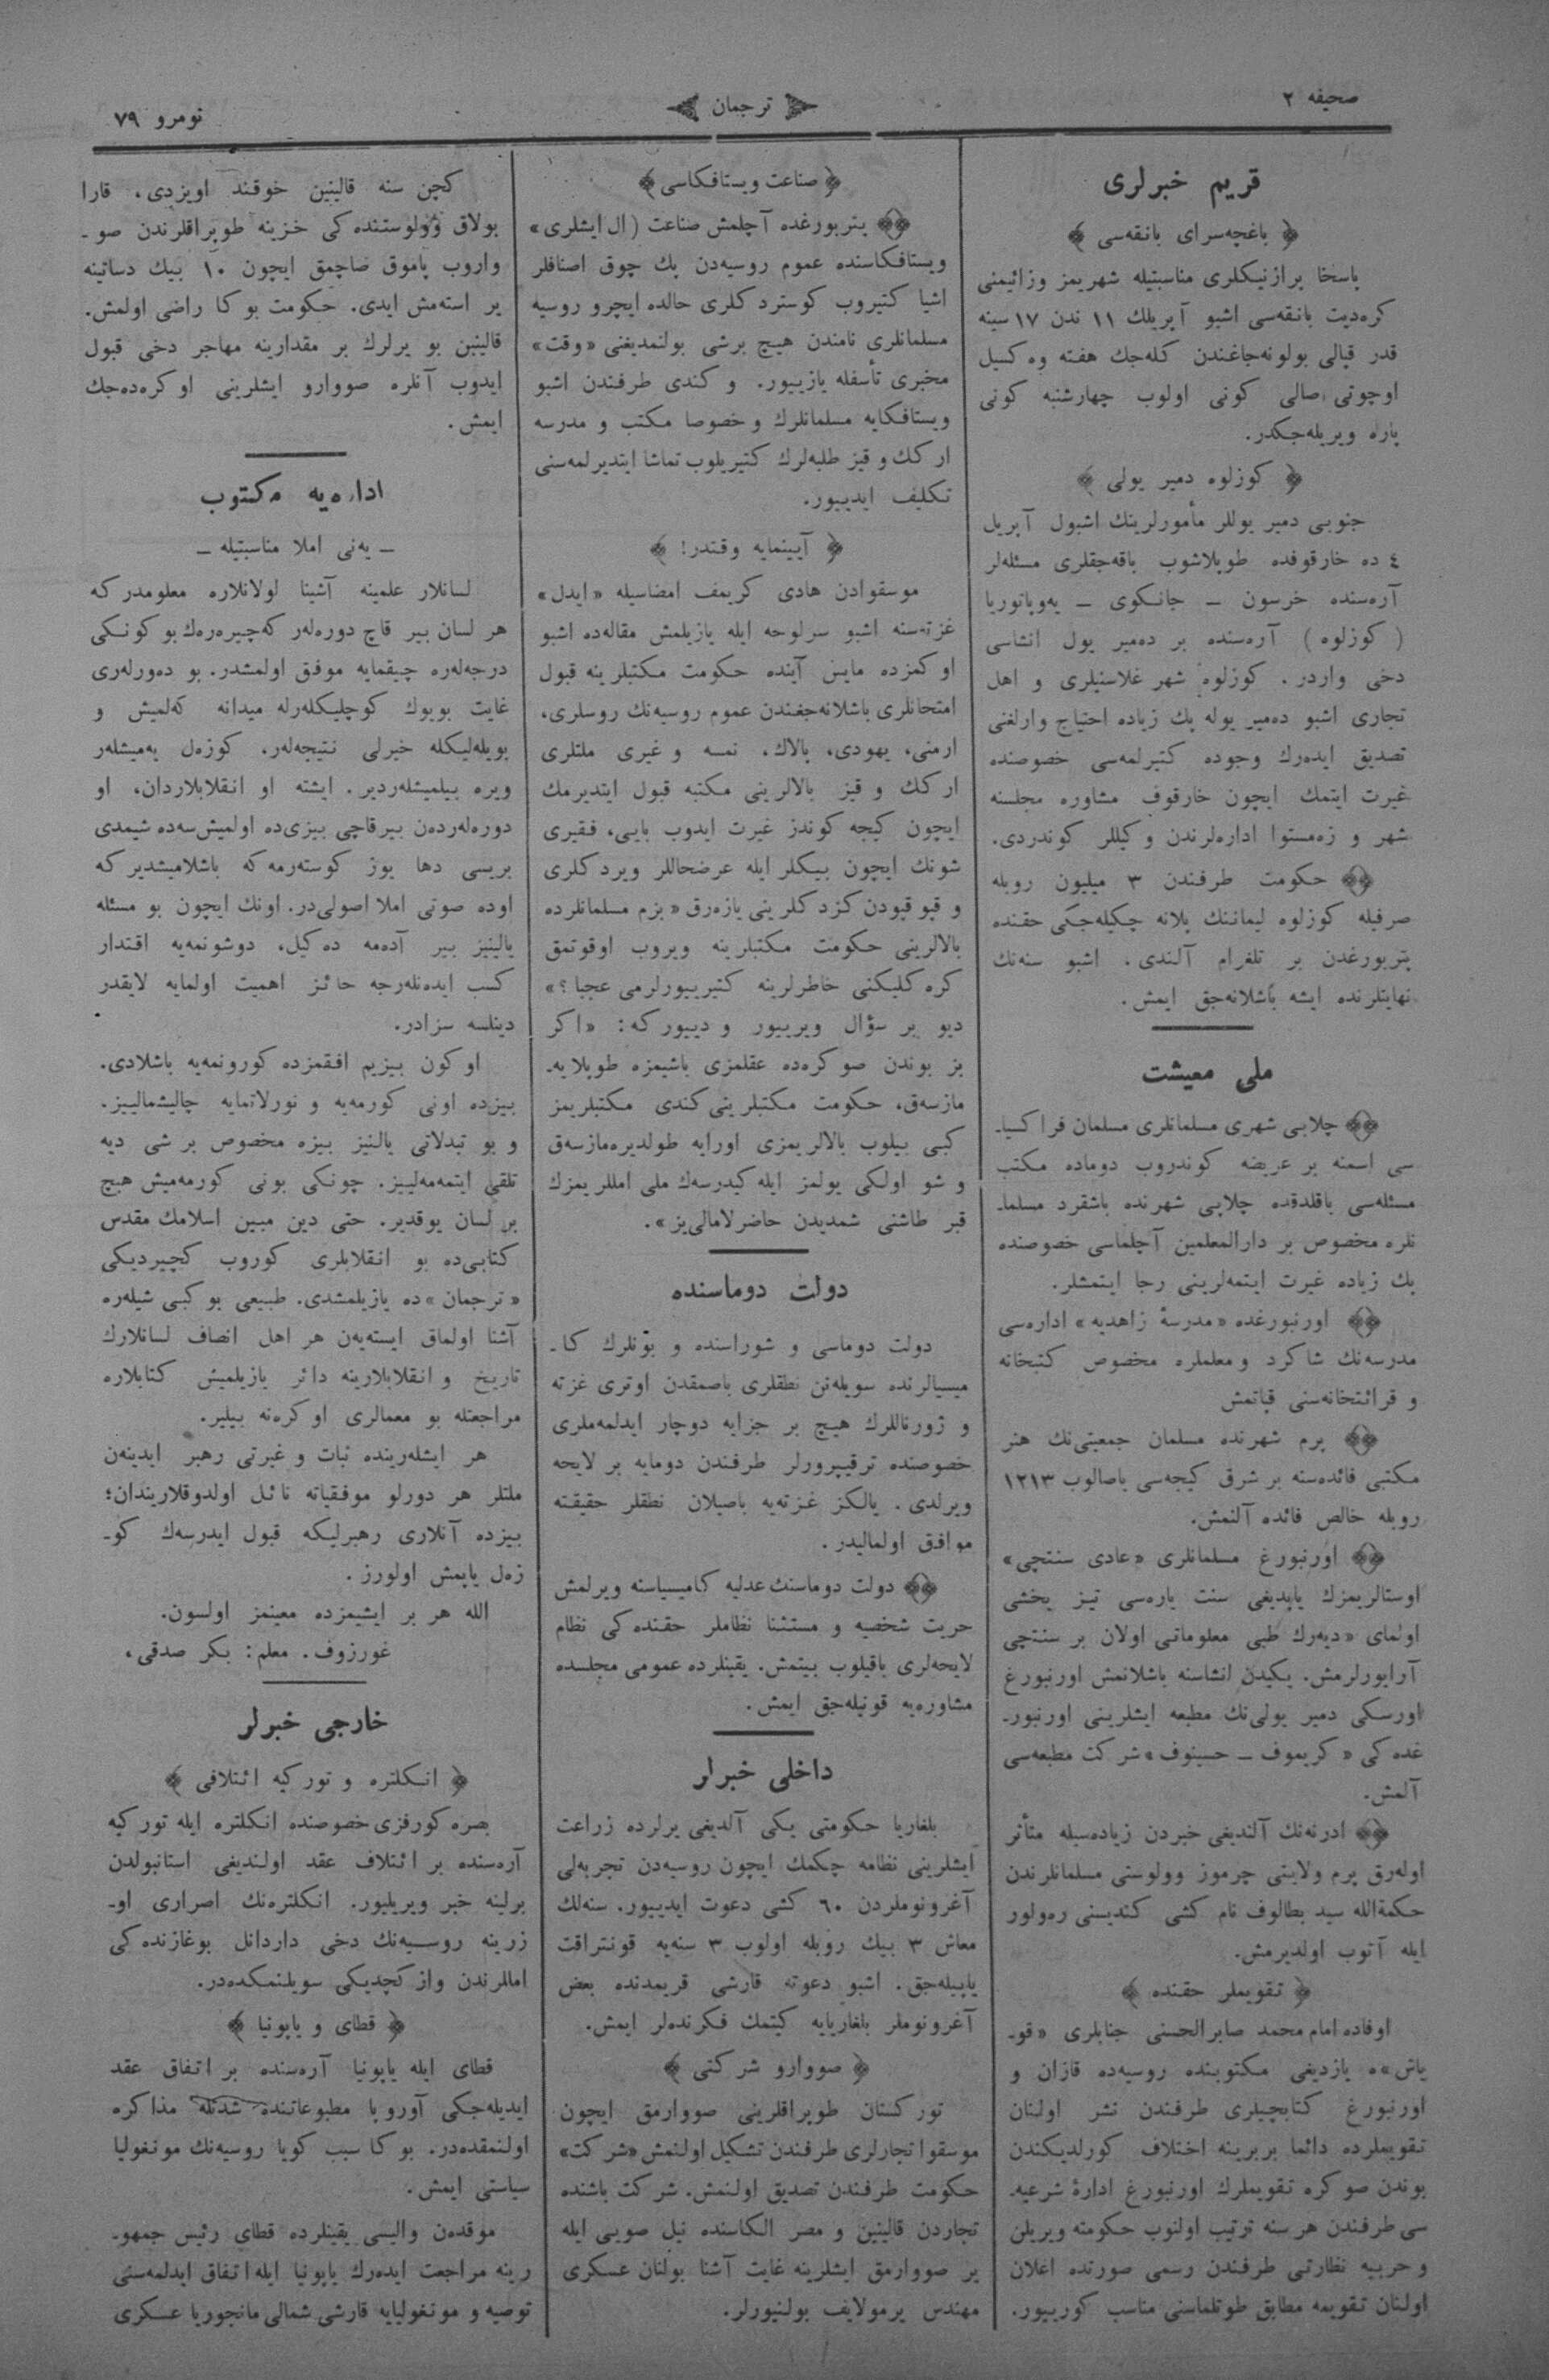 صحیفه ۲
ترجمان
نومرو ۷۹
قریم خبرلری
﴿ باغچه‌سرای بانقه‌سی ﴾
پاسخا پرازنیکلری مناسبتیله شهریمز وزائیمنی
کره‌دیت بانقه‌سی اشبو آپریلك ۱۱ ندن ۱۷ سینه
قدر قپالی بولونه‌جاغندن کله‌جك هفته وه کسیل
اوچوتی صالی کونی اولوب چهارشنبه کونی
پاره ویریله‌جکدر.
﴿ کوزلوه دمیر یولی ﴾
جنوبی دمیر یوللر مأمورلرینك اشبول آپریل
٤ ده خارقوفده طوپلاشوب باقه‌جقلری مسئله‌لر
آره‌سنده خرسون ـ جانکوی ـ یه‌وپاتوریا
( کوزلوه ) آره‌سنده بر ده‌میر یول انشاسی
دخی واردر. کوزلوه شهر غلاسنیلری و اهل
تجاری اشبو ده‌میر یوله پك زیاده احتیاج وارلغنی
تصدیق ایده‌رك وجوده کتیرلمه‌سی خصوصنده
غیرت ایتمك ایچون خارقوف مشاوره مجلسنه
شهر و زه‌مستوا اداره‌لرندن وکیللر کوندردی.
حکومت طرفندن ۳ میلیون روبله
صرفیله کوزلوه لیماننك پلانه چکیله‌جکی حقنده
پتربورغدن بر تلغرام آلندی. اشبو سنه‌نك
نهایتلرنده ایشه باشلانه‌جق ایمش.
ملی معیشت
چلابی شهری مسلمانلری مسلمان فراکسیا-
سی اسمنه بر عریضه کوندروب دوماده مکتب
مسئله‌سی باقلدقده چلابی شهرنده باشقرد مسلما-
نلره مخصوص بر دارالمعلمین آچلماسی خصوصنده
پك زیاده غیرت ایتمه‌لرینی رجا ایتمشلر.
اورنبورغده «مدرسهٔ زاهدیه» اداره‌سی
مدرسه‌نك شاکرد و معلملره مخصوص کتبخانه
و قرائتخانه‌سنی قپاتمش
پرم شهرنده مسلمان جمعیتی‌نك هنر
مکتبی فائده‌سنه بر شرق کیجه‌سی یاصالوب ۱۲۱۳
روبله خالص فائده آلنمش.
اورنبورغ مسلمانلری «عادی سنتچی»
اوستالریمزك یاپدیغی سنت یاره‌سی تیز یخشی
اولمای » دیه‌رك طبی معلوماتی اولان بر سنتچی
آرایورلرمش. یکیدن انشاسنه باشلانمش اورنبورغ
اورسکی دمیر یولی‌نك مطبعه ایشلرینی اورنبور-
غده‌کی «کریموف ـ حسینوف» شرکت مطبعه‌سی
آلمش.
ادرنه‌نك آلندیغی خبردن زیاده‌سیله متأثر
اوله‌رق پرم ولایتی چرموز وولوستی مسلمانلرندن
حکمة‌الله سید بطالوف نام کشی کندیسنی ره‌ولور
ایله آتوب اولدیرمش.
﴿ تقویملر حقنده ﴾
اوفاده امام محمد صابر الحسنی جنابلری «قو-
یاش»ه یازدیغی مکتوبنده روسیه‌ده قازان و
اورنبورغ کتابچیلری طرفندن نشر اولنان
تقویملرده دائما بربرینه اختلاف کورلدیکندن
بوندن صوکره تقویملرك اورنبورغ ادارهٔ شرعیه-
سی طرفندن هر سنه ترتیب اولنوب حکومته ویریلن
و حربیه نظارتی طرفندن رسمی صورتده اعلان
اولنان تقویمه مطابق طوتلماسنی مناسب کورییور.
﴿ صناعت ویستافکاسی ﴾
پتربورغده آچلمش صناعت (ال ایشلری»
ویستافکاسنده عموم روسیه‌دن پك چوق اصنافلر
اشیا کتیروب کوستردکلری حالده ایچرو روسیه
مسلمانلری نامندن هیچ برشی بولنمدیغنی «وقت»
مخبری تأسفله یازییور. و کندی طرفندن اشبو
ویستافکایه مسلمانلرك و خصوصا مکتب و مدرسه
ارکك و قیز طلبه‌لرك کتیریلوب تماشا ایتدیرلمه‌سنی
تکلیف ایدییور.
﴿ آیینمایه وقتدر! ﴾
موسقوادن هادی کریمف امضاسیله «ایدل»
غزته‌سنه اشبو سرلوحه ایله یازیلمش مقاله‌ده اشبو
اوکمزده مایس آینده حکومت مکتبلرینه قبول
امتحانلری باشلانه‌جغندن عموم روسیه‌نك روسلری،
ارمنی، یهودی، پالاك، نمسه و غیری ملتلری
ارکك و قیز بالالرینی مکتبه قبول ایتدیرمك
ایچون کیجه کوندز غیرت ایدوب بایی، فقیری
شونك ایچون بیکلر ایله عرضحاللر ویردکلری
و قپو قپودن کزدکلرینی یازه‌رق «بزم مسلمانلرده
بالالرینی حکومت مکتبلرینه ویروب اوقوتمق
کره‌کلیکنی خاطرلرینه کتیرییورلرمی عجبا؟»
دیو بر سؤال ویرییور و دییورکه: «اکر
بز بوندن صوکره‌ده عقلمزی باشیمزه طوپلایه-
مازسه‌ق، حکومت مکتبلرینی کندی مکتبلریمز
کبی بیلوب بالالریمزی اورایه طولدیره‌مازسه‌ق
و شو اولکی یولمز ایله کیدرسه‌ك ملی امللریمزك
قبر طاشنی شمدیدن حاضرلامالی‌یز».
دولت دوماسنده
دولت دوماسی و شوراسنده و بونلرك کا-
میسیالرنده سویله‌نن نطقلری باصمقدن اوتری غزته
و ژورناللرك هیچ بر جزایه دوچار ایدلمه‌ملری
خصوصنده ترقیپرورلر طرفندن دومایه بر لایحه
ویرلدی. یالکز غزته‌یه باصیلان نطقلر حقیقته
موافق اولمالیدر.
دولت دوماسنك عدلیه کامیسیاسنه ویرلمش
حریت شخصیه و مستثنا نظاملر حقنده‌کی نظام
لایحه‌لری باقیلوب بیتمش. یقینلرده عمومی مجلسده
مشاوره‌یه قونیله‌جق ایمش.
داخلی خبرلر
بلغاریا حکومتی یکی آلدیغی یرلرده زراعت
ایشلرینی نظامه چکمك ایچون روسیه‌دن تجربه‌لی
آغرونوملردن ٦۰ کشی دعوت ایدییور. سنه‌لك
معاش ۳ بیك روبله اولوب ۳ سنه‌یه قونتراقت
یاپیله‌جق. اشبو دعوته قارشی قریمدنده بعض
آغرونوملر بلغاریایه کیتمك فکرنده‌لر ایمش.
﴿ صووارو شرکتی ﴾
تورکستان طوپراقلرینی صووارمق ایچون
موسقوا تجارلری طرفندن تشکیل اولنمش «شرکت»
حکومت طرفندن تصدیق اولنمش. شرکت باشنده
تجاردن قالینین و مصر الکاسنده نیل صویی ایله
یر صووارمق ایشلرینه غایت آشنا بولنان عسکری
مهندس یرمولایف بولنیورلر.
کچن سنه قالینین خوقند اویزدی، قارا
بولاق وولوستنده‌کی خزینه طوپراقلرندن صو-
واروب پاموق صاچمق ایچون ۱۰ بیك دساتینه
یر استه‌مش ایدی. حکومت بوکا راضی اولمش.
قالینین بو یرلرك بر مقدارینه مهاجر دخی قبول
ایدوب آنلره صووارو ایشلرینی اوکره‌ده‌جك
ایمش.
اداره‌یه مکتوب
ـ یه‌نی املا مناسبتیله ـ
لسانلار علمینه آشینا لولانلاره معلومدرکه
هر لسان بیر قاچ دوره‌لەر که‌چیره‌ره‌ك بو کونکی
درجه‌لەره چیقمایه موفق اولمشدر. بو ده‌ورله‌ری
غایت بویوك کوچلیکله‌رله میدانه که‌لمیش و
بویله‌لیکله خیرلی نتیجه‌لەر، کوزه‌ل یه‌میشله‌ر
ویره بیلمیشله‌ردیر. ایشته او انقلابلاردان، او
دوره‌لەردەن بیرقاچی بیزی‌ده اولمیش‌سه‌ده شیمدی
بریسی دها یوز کوسته‌رمه‌که باشلامیشدیرکه
اوده صوتی املا اصولی‌در. اونك ایچون بو مسئله
یالینیز بیر آده‌مه ده‌کیل، دوشونمه‌یه اقتدار
کسب ایده‌نلەرجه حائز اهمیت اولمایه لایقدر
دینلسه سزادر.
اوکون بیزیم افقمزده کورونمه‌یه باشلادی.
بیزده اونی کورمه‌یه و نورلاتمایه چالیشمالییز.
و بو تبدلاتی یالنیز بیزه مخصوص بر شی دیه
تلقی ایتمه‌مه‌لییز. چونکی بونی کورمه‌میش هیچ
بر لسان یوقدیر. حتی دین مبین اسلامك مقدس
کتابی‌ده بو انقلابلری کوروب کچیردیکی
«ترجمان»ده یازیلمشدی. طبیعی بو کبی شیلەره
آشنا اولماق ایسته‌یەن هر اهل انصاف لسانلارك
تاریخ و انقلابلارینه دائر یازیلمیش کتابلاره
مراجعتله بو معمالری اوکره‌نه بیلیر.
هر ایشله‌رینده ثبات و غیرتی رهبر ایدینەن
ملتلر هر دورلو موفقیاته نائل اولدوقلاریندان؛
بیزده آنلاری رهبرلیکه قبول ایدرسه‌ك کو-
زەل یاپمش اولورز.
الله هر بر ایشیمزده معینمز اولسون.
غورزوف. معلم: بکر صدقی،
خارجی خبرلر
﴿ انکلتره و تورکیه ائتلافی ﴾
بصره کورفزی خصوصنده انکلتره ایله تورکیه
آره‌سنده بر ائتلاف عقد اولندیغی استانبولدن
برلینه خبر ویریلیور. انکلتره‌نك اصراری او-
زرینه روسیه‌نك دخی داردانل بوغازنده‌کی
امللرندن واز کچدیکی سویلنمکده‌در.
﴿ قطای و یاپونیا ﴾
قطای ایله یاپونیا آره‌سنده بر اتفاق عقد
ایدیله‌جکی آوروپا مطبوعاتنده شدتله مذاکره
اولنمقده‌در. بوکا سبب کویا روسیه‌نك مونغولیا
سیاستی ایمش.
موقدەن والیسی یقینلرده قطای رئیس جمهو-
رینه مراجعت ایده‌رك یاپونیا ایله اتفاق ایدلمه‌سنی
توصیه و مونغولیایه قارشی شمالی مانجوریا عسکری